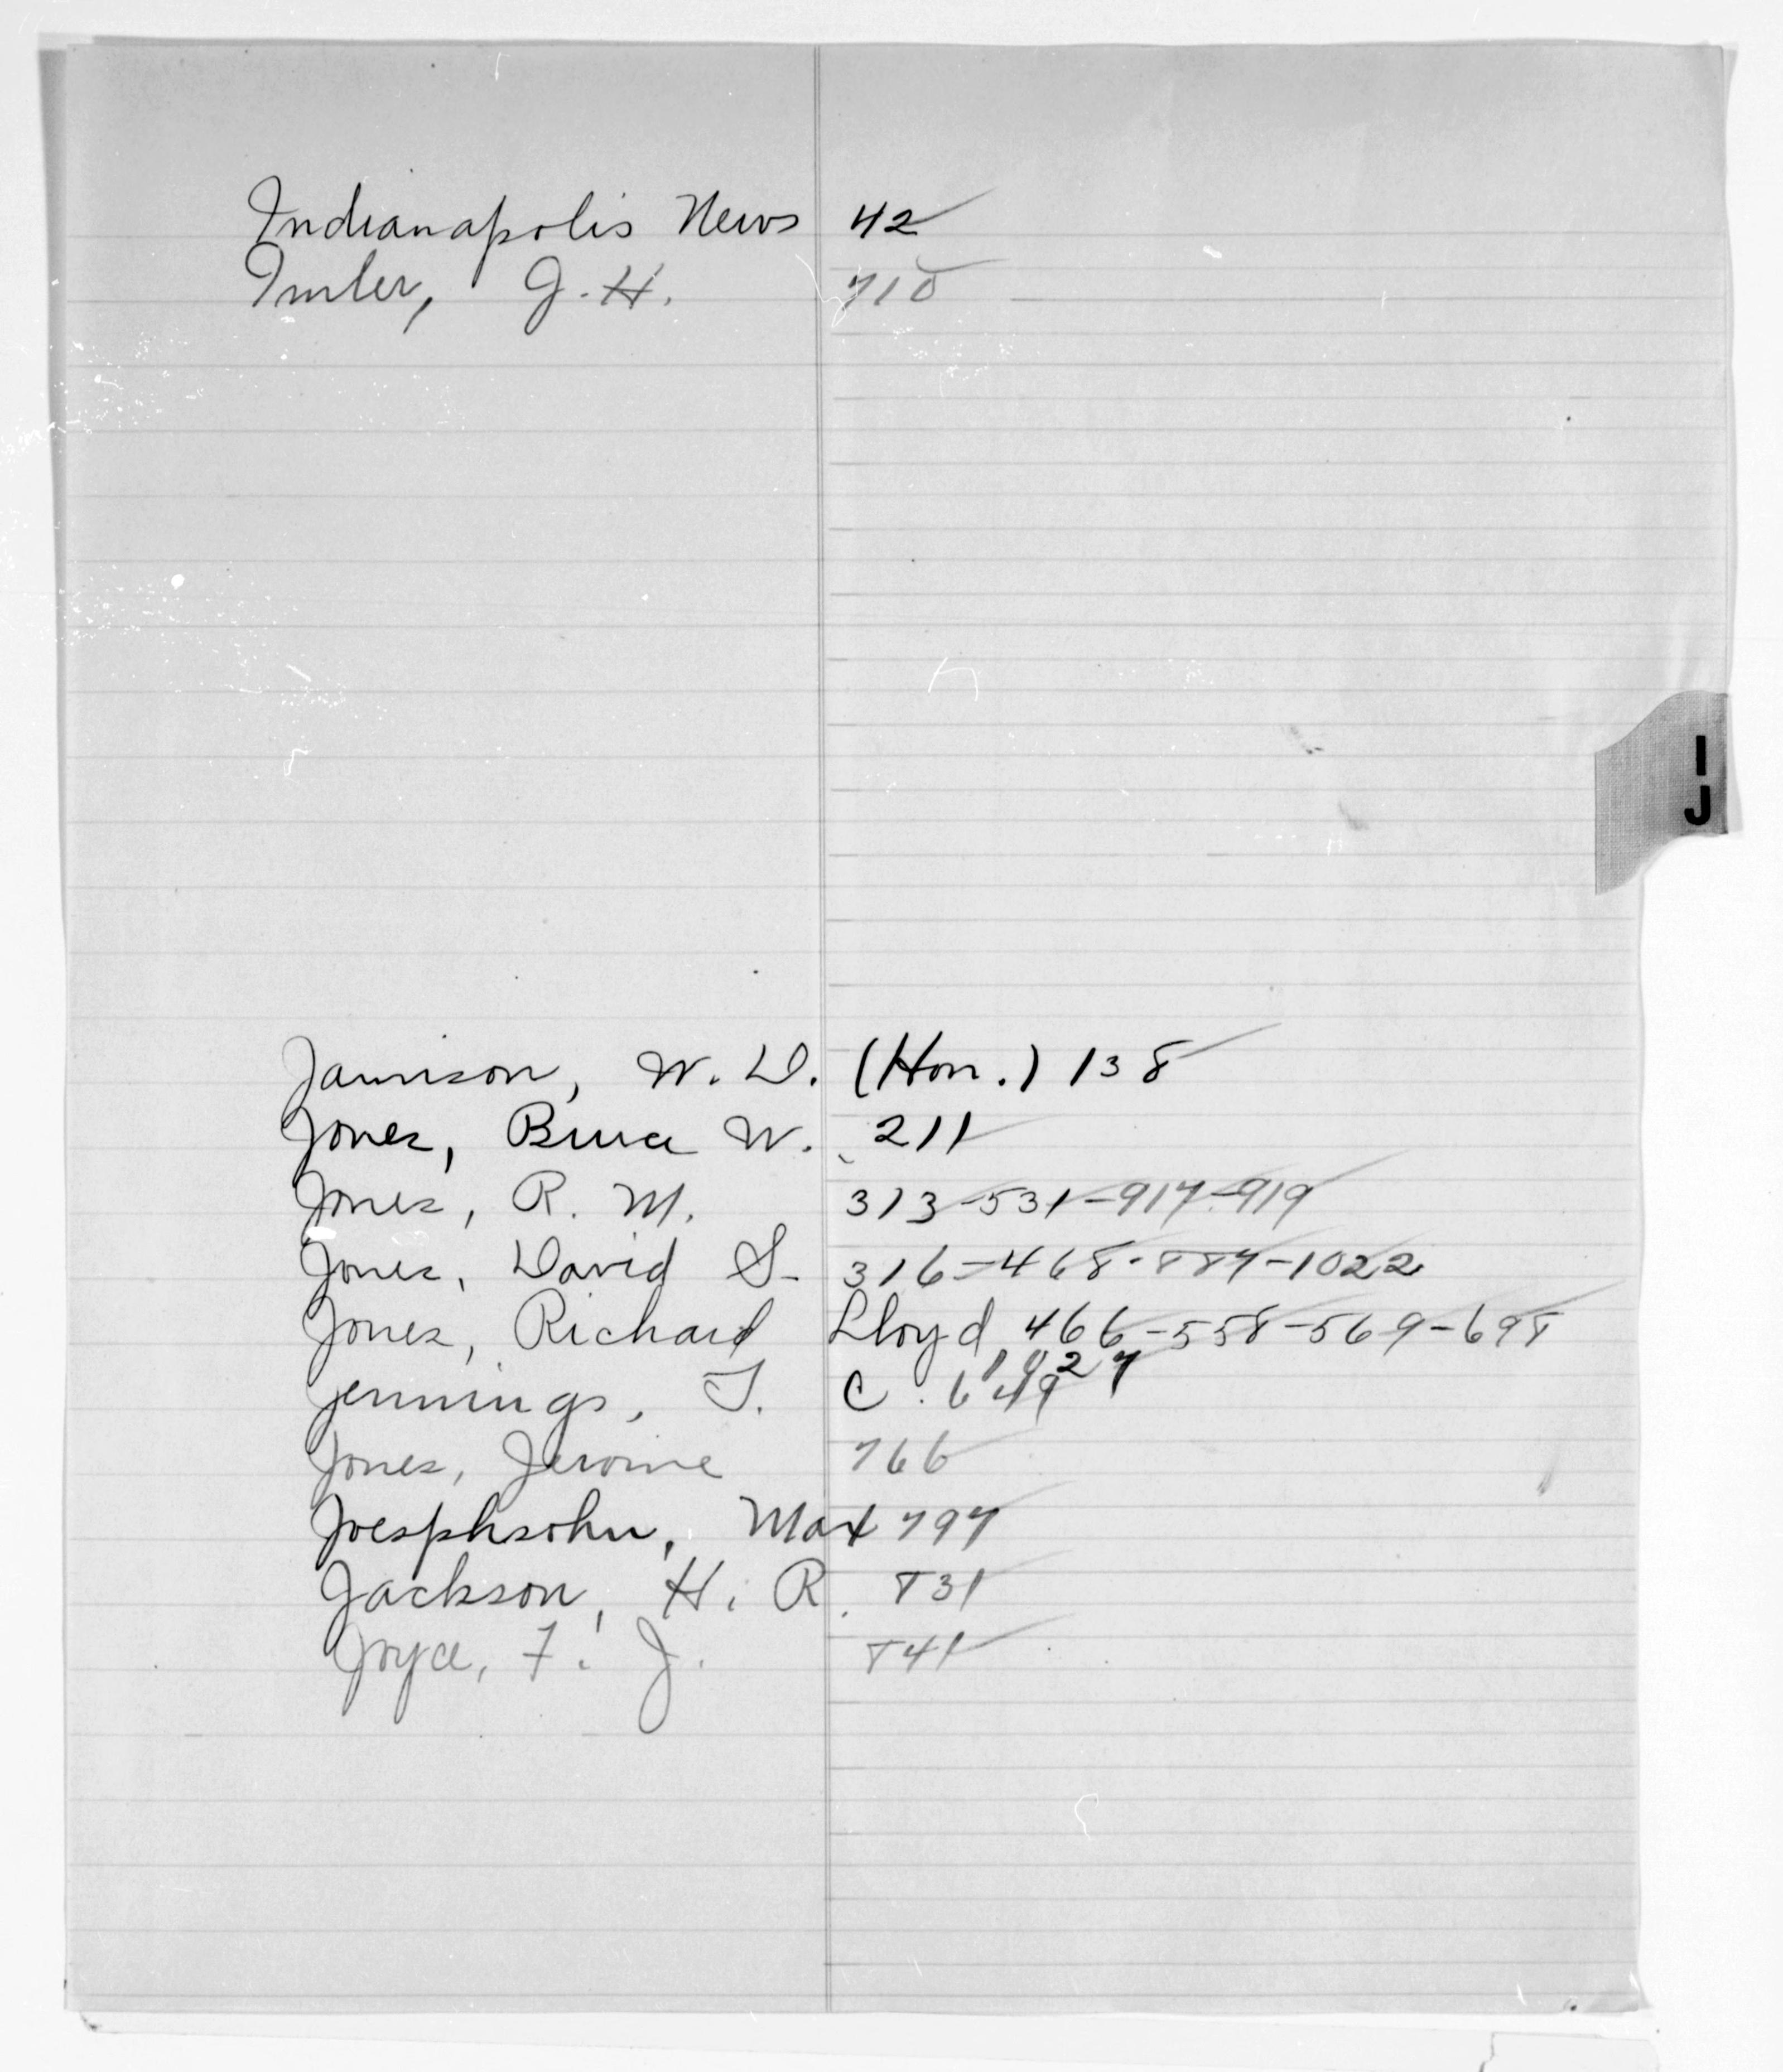 Indianapolis News 42
Imler, J. H. 710
I
J
Jamison, W. D. (Hon.) 138
Jones, Bruce W. 211
Jones, R. M. 313-531-917-919
Jones, David S. 316-468-887-1022
Jones, Richard Lloyd 466-558-569-698
1027
Jennings, T. C. 649
Jones, Jerome 766
Joesphsohn, Max 797
Jackson, H. R. 831
Joyce, F. J. 841